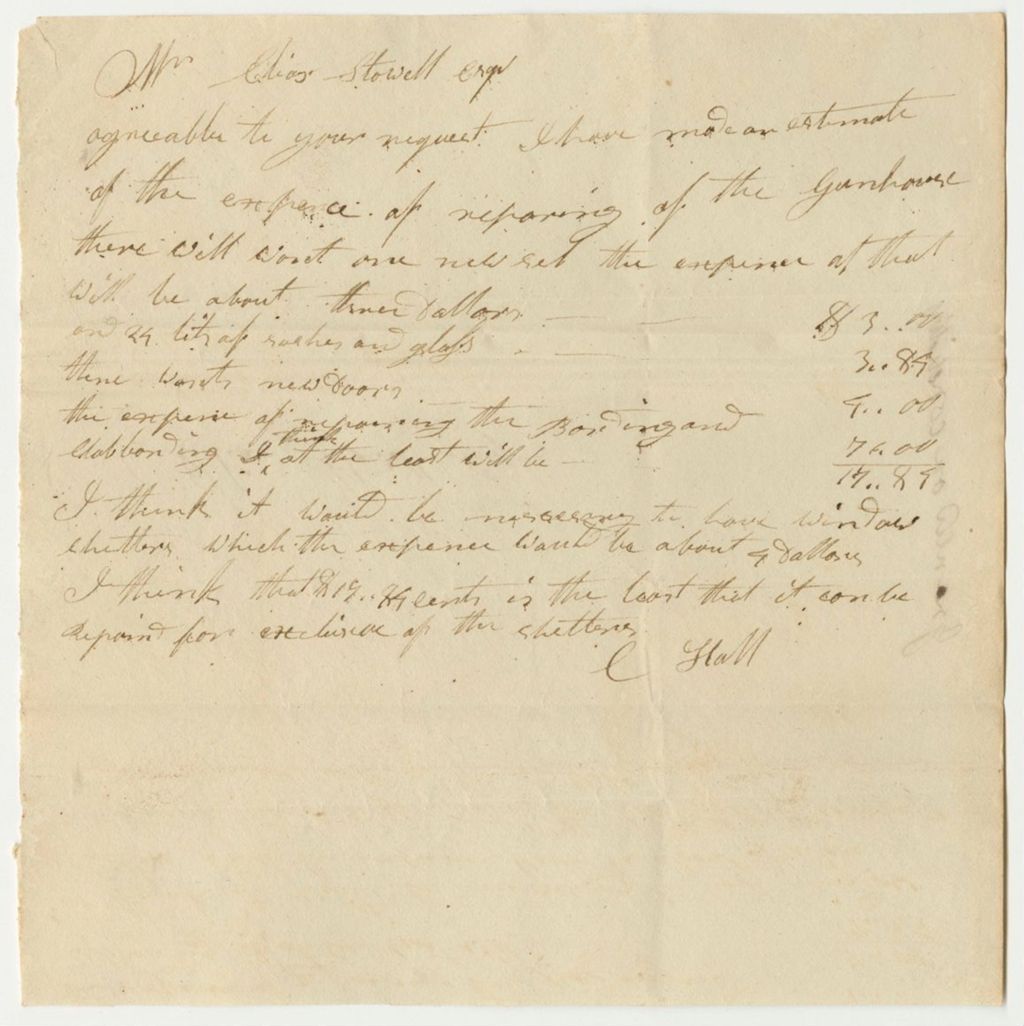 Mr Elias Stowell Esqr
agreeable to your request I have made an estimate
of the expence of reparing of the Gunhouse
there will want one new sel the expence of that
will be about three Dallars — — $ 3..00
and 24 lits of sashes and glass . — 3..84
there wants new Doors 4..00
the expence of repairing the Bording and
clabbording I think at the least will be — 7..00
17..84
I think it would be nessesary to have window
shetters which the expence would be about 4 Dallars
I think that $ 17..84 cents is the least that it can be
repaird for exclusive of the shetters
C Hall